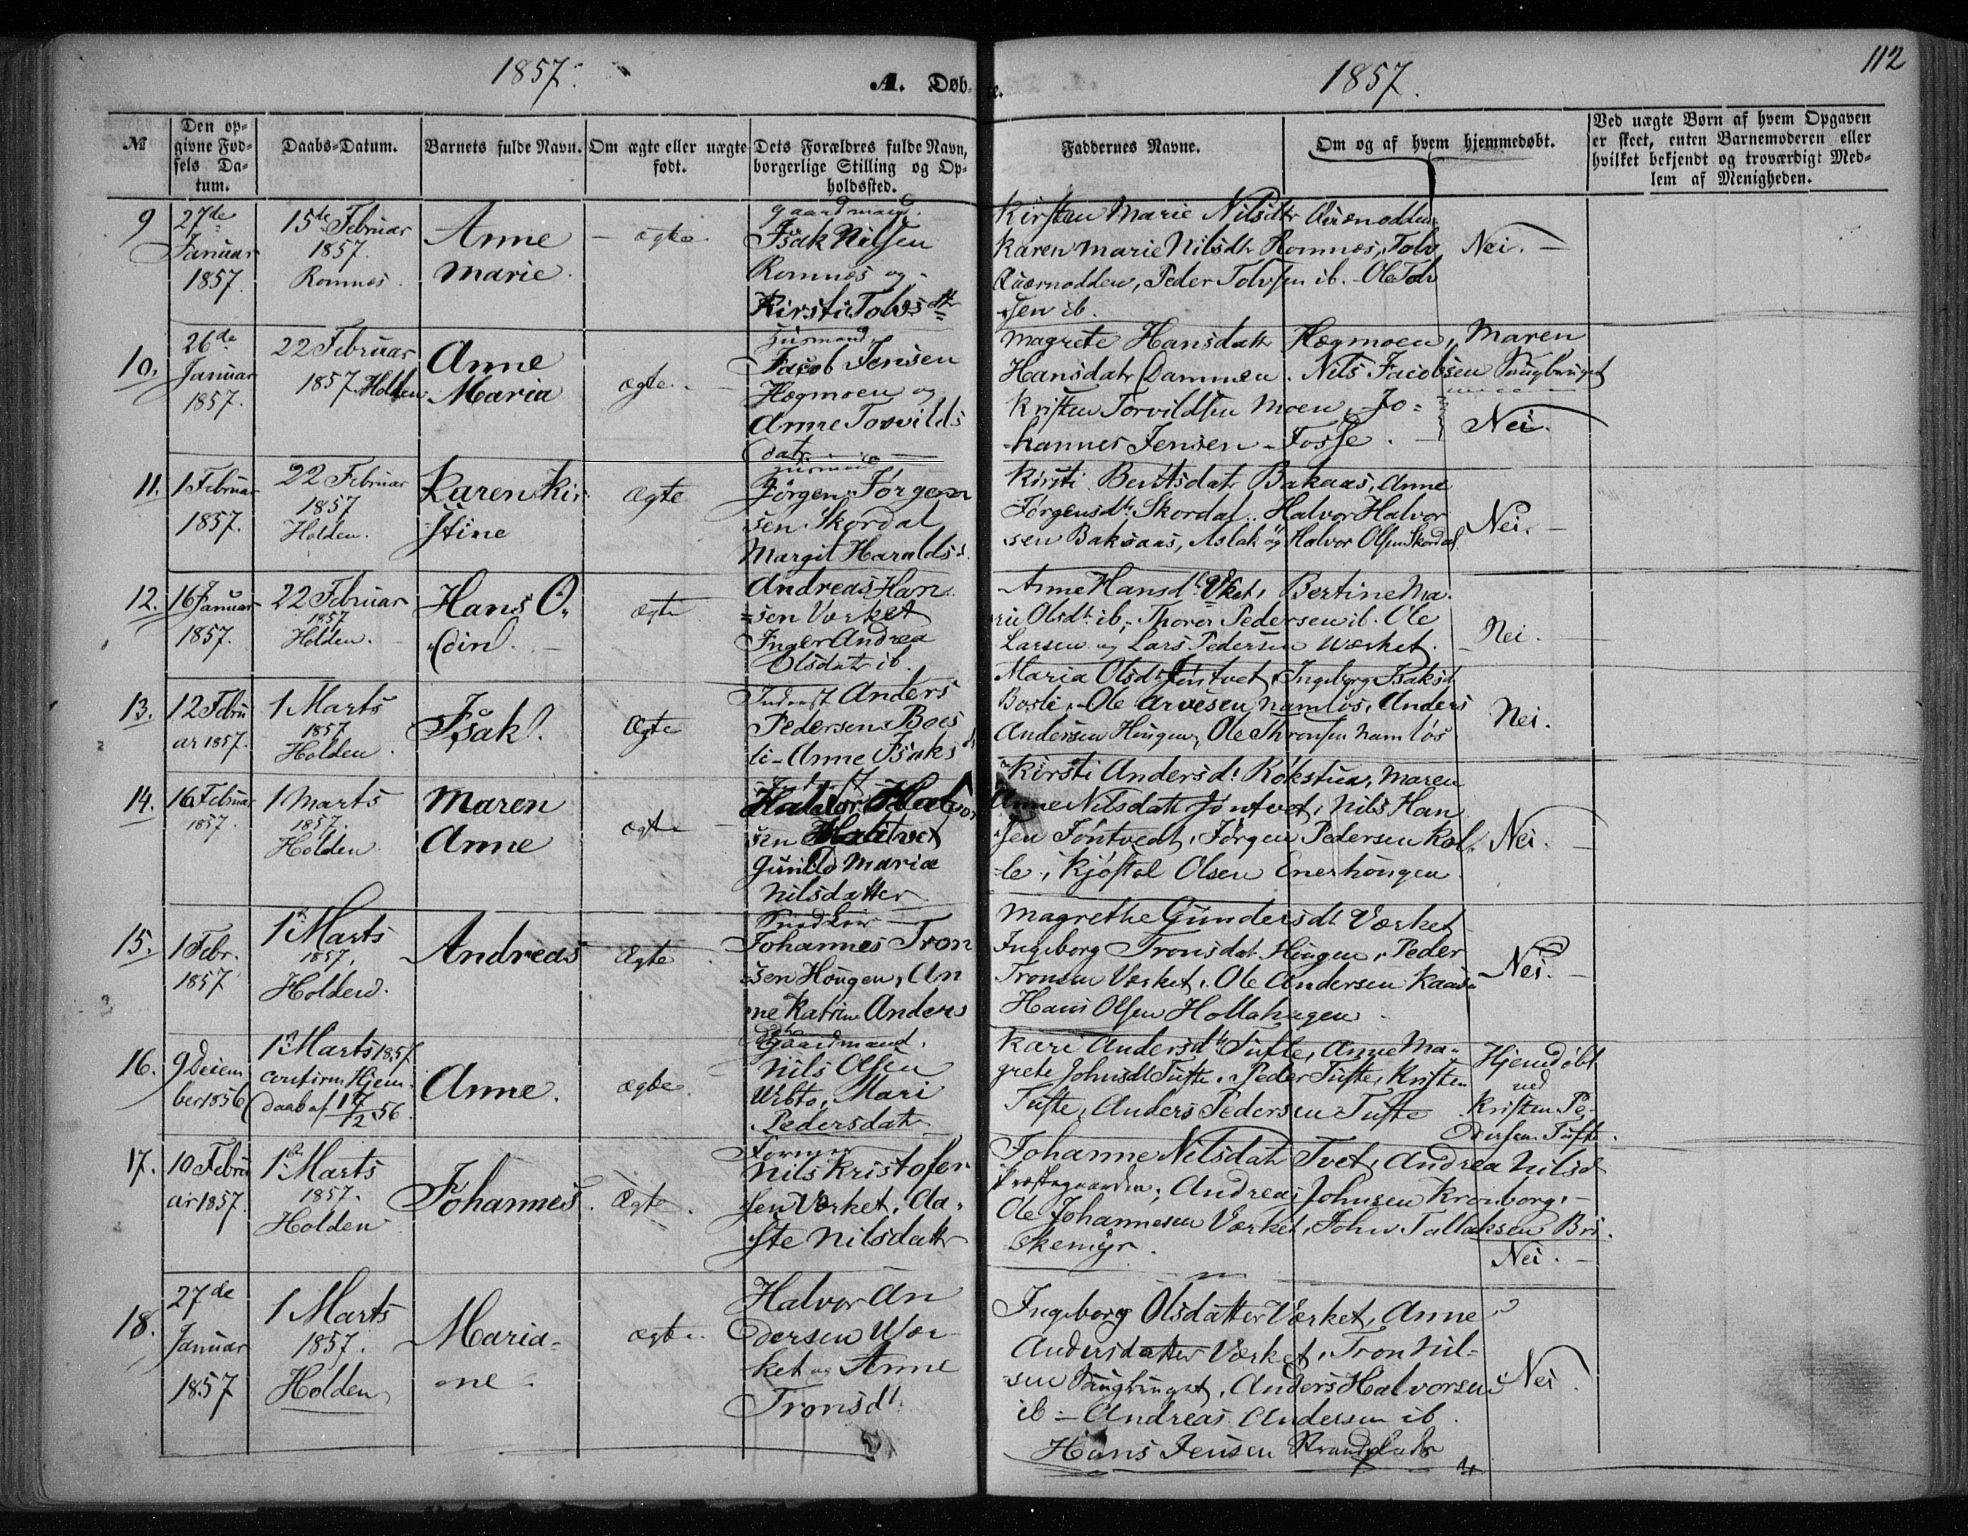 1857.
A. Døb-
te.
1857.
112
№
Den op-
givne Fød-
sels Da-
tum.
Daabs-Datum.
Barnets fulde Navn.
Om ægte eller uægte
født.
Dets Forældres fulde Navn,
borgerlige Stilling og Op-
holdssted.
Faddernes Navne.
Om og af hvem hjemmedøbt.
Ved uægte Børn af hvem Opgaven
er skeet, enten Barnemoderen eller
hvilket bekjendt og troværdigt Med-
lem af Menigheden.
9
27de
Januar
1857.
15de Februar
1857.
Romnes.
Anne
Marie
ægte
gaardmand
Isak Nilsen
Romnes og
Kirsti Tolvsdtr
Kirsten Marie Nilsdtr
Karen Marie Nilsdtr Romnes, Tolv
Qværnodden, Peder Tolvsen ib. Ole Tolv
sen ib.
Nei.
10.
26de
Januar
1857.
22 Februar
1857. Holden
Anne
Maria
ægte
Husmand
Jacob Jensen
Hægmoen og
Anne Torvilds
datr
Magrete Hansdatr Hægmoen, Maren
Hansdatr Dammen. Nils Jacobsen
Kristen Torvildsen Moen, Jo=
hannes Jensen Fosse.
Nei.
11.
1 Februar
1857.
22 Februar
1857
Holden.
Karen Kir
stine
Ægte
Husmand
Jørgen Jørgen
sen Skordal
Margit Haralds
Kirsti Bentsdatr Baksaas, Anne
Jørgensdtr Skordal. Halvor Halvor
sen Baksaas, Aslak og Halvor Olsen Skordal
Nei.
12.
16 Januar
1857.
22 Februar
1857
Holden.
Hans O=
din.
ægte
Andreas Han
sen Værket
Inger Andrea
Olsdatr ib.
Anne Hansdtr Vket, Bertine Ma
rie Olsdtr ib, Thorer Pedersen ib. Ole
Larsen og Lars Pedersen Værket.
Nei.
13.
12 Febru
ar 1857.
1 Marts
1857
Holden.
Isak.
Ægte
Inderst Anders
Pedersen Boes
li - Anne Isaksd
Maria Olsdtr Jøntvet, Ingeborg Isaksd
Bosli, Ole Arvesen Namløs, Anders
Andersen Hougen, Ole Thronsen Namløs
Nei.
14.
16 Februar
1857.
1 Marts
1857.
Holden.
Maren
Anne
ægte
Halvor Halvor
sen
Gunild Maria
Nilsdatter
Kirsti Andersdt Røkstua, Maren
Anne Nilsdatr Jøntvet, Nils Han
sen Jøntvedt, Jørgen Pedersen Kol
le, Kjøstel Olsen Enerhougen
Nei.
15.
1 Febr.
1857
1ste Marts
1857.
Holden.
Andreas
Ægte
Johannes Tron
sen Hougen, An
ne Katrine Anders
datr
Magrethe Gundersdt Værket
Ingeborg Tronsdat Hougen, Peder
Tronsen Værket, Ole Andersen Kaasa
Hans Olsen Hollahagen
Nei.
16.
9 Decem
ber 1856
1ste Marts 1857
confirm. Hjem
daab af 17/12 56
Anne.
ægte.
Gaardmand.
Nils Olsen
Urbto, Mari
Pedersdatr
Kari Andersdtr Tufte, Anne Ma-
grete Johnsdt Tufte, Peder Tufte, Kristen
Tufte, Anders Pedersen Tufte
Hjemdøbt
ved
Kristen Pe-
dersen Tufte.
17.
10 Febru
ar 1857.
1ste Marts
1857.
Holden
Johannes
Ægte
Former
Nils Kristofer
sen Værket, Aa-
ste Nilsdatr
Johanne Nilsdatr Tvet, Andrea Nilsd
Præstegaarden, Andreas Johnsen Kronborg,
Ole Johannesen Værket, John Tallaksen Bri
skemyr.
Nei.
18.
27de
Januar
1857
1 Marts
1857.
Holden
Maria-
ne
ægte
Halvor An
dersen Vær-
ket og Anne
Tronsdt.
Ingeborg Olsdatter Værket, Anne
Andersdatter Værket, Tron Nil-
sen Saugbruget, Anders Halvorsen
ib - Andreas Andersen ib
Hans Jensen
Nei.